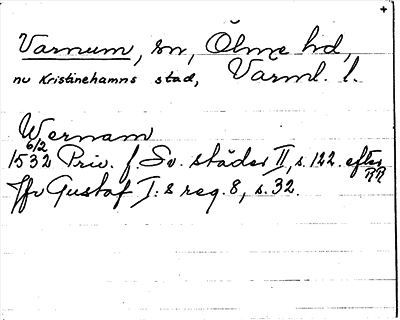 +
Varnum, sn, Ölme hd,
nu Kristinehamns stad, Värml. l.
Wernam
6/2
1532 Priv. f. Sv. städer II, s. 122. efter RR
Jfr Gustaf I:s reg. 8, s. 32.